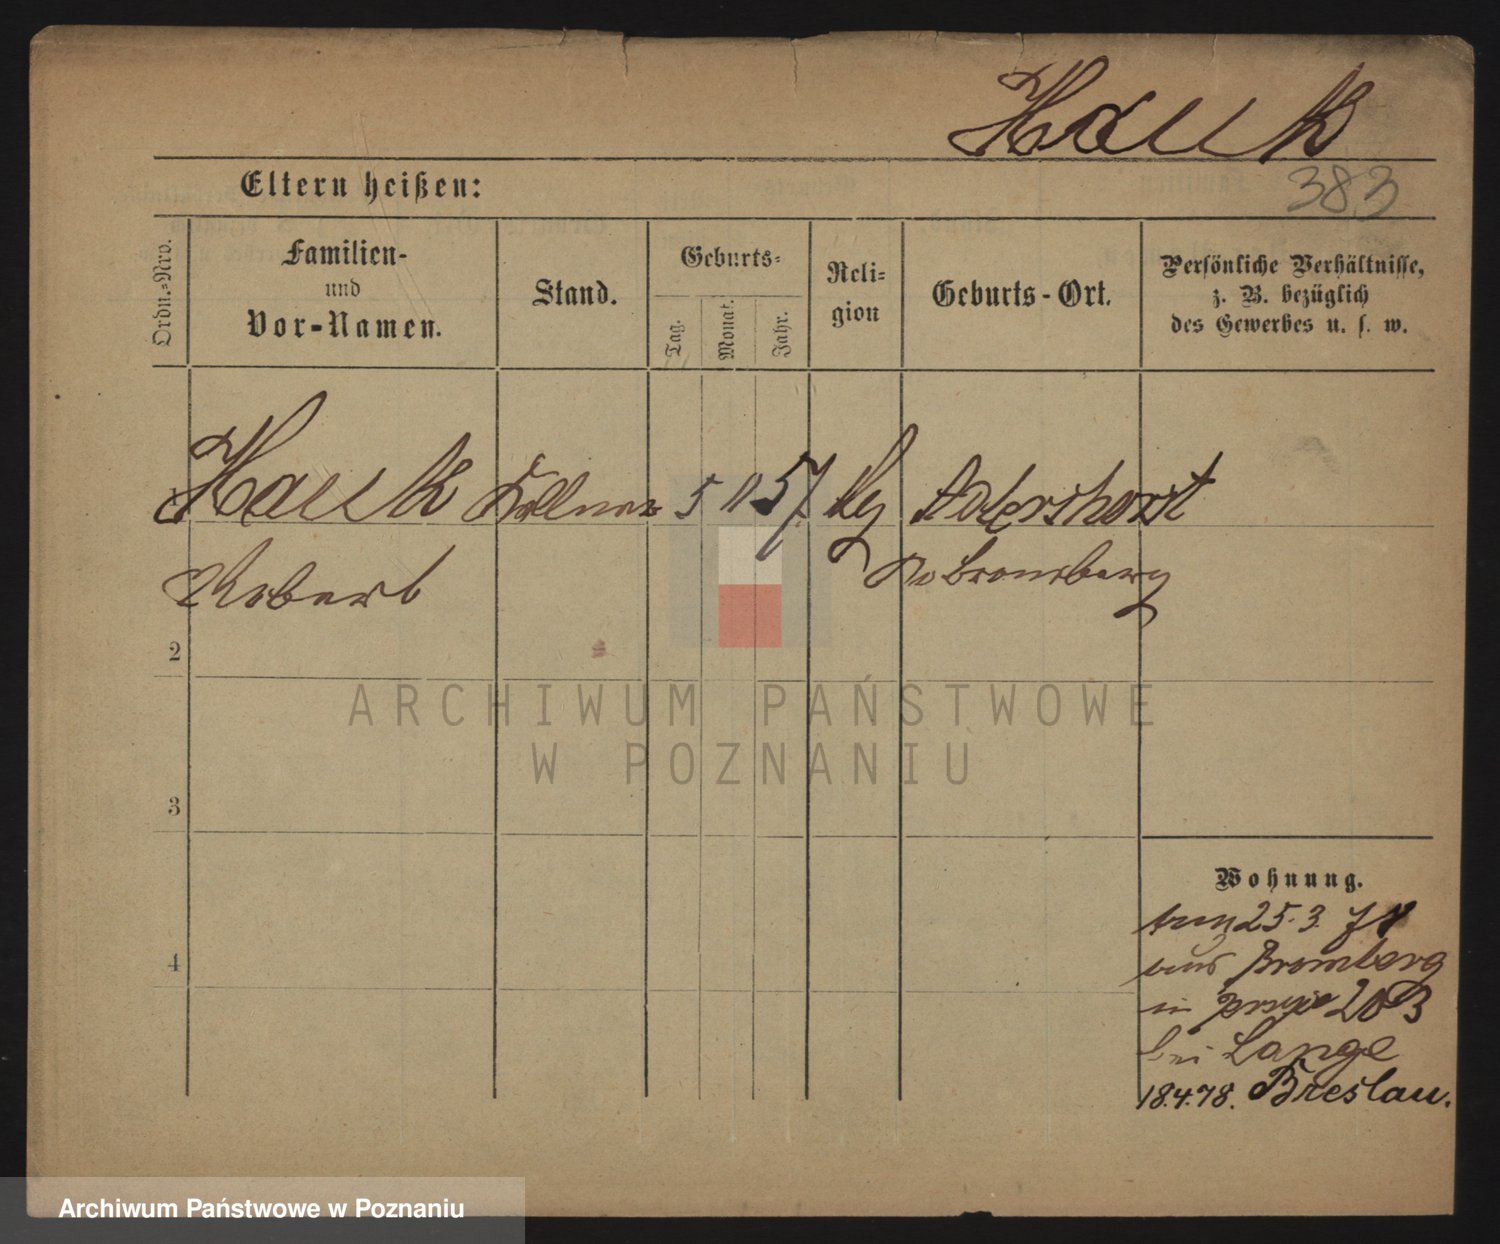 Hauk
383
Eltern heißen:
Ordn.-Nro.
Familien-
und
Vor-Namen.
Stand.
Geburts-
Tag.
Monat.
Jahr.
Reli-
gion
Geburts-Ort.
Persönliche Verhältnisse,
z. B. bezüglich
des Gewerbes u. s. w.
Hauk Kellner 5 11 57. Adlershorst
Robert Bromberg
2
3
4
Wohnung.
25.3. 78
aus Bromberg
in
bei Lange
18.4.78. Breslau.
ARCHIWUM PAŃSTWOWE
W POZNANIU
Archiwum Państwowe w Poznaniu